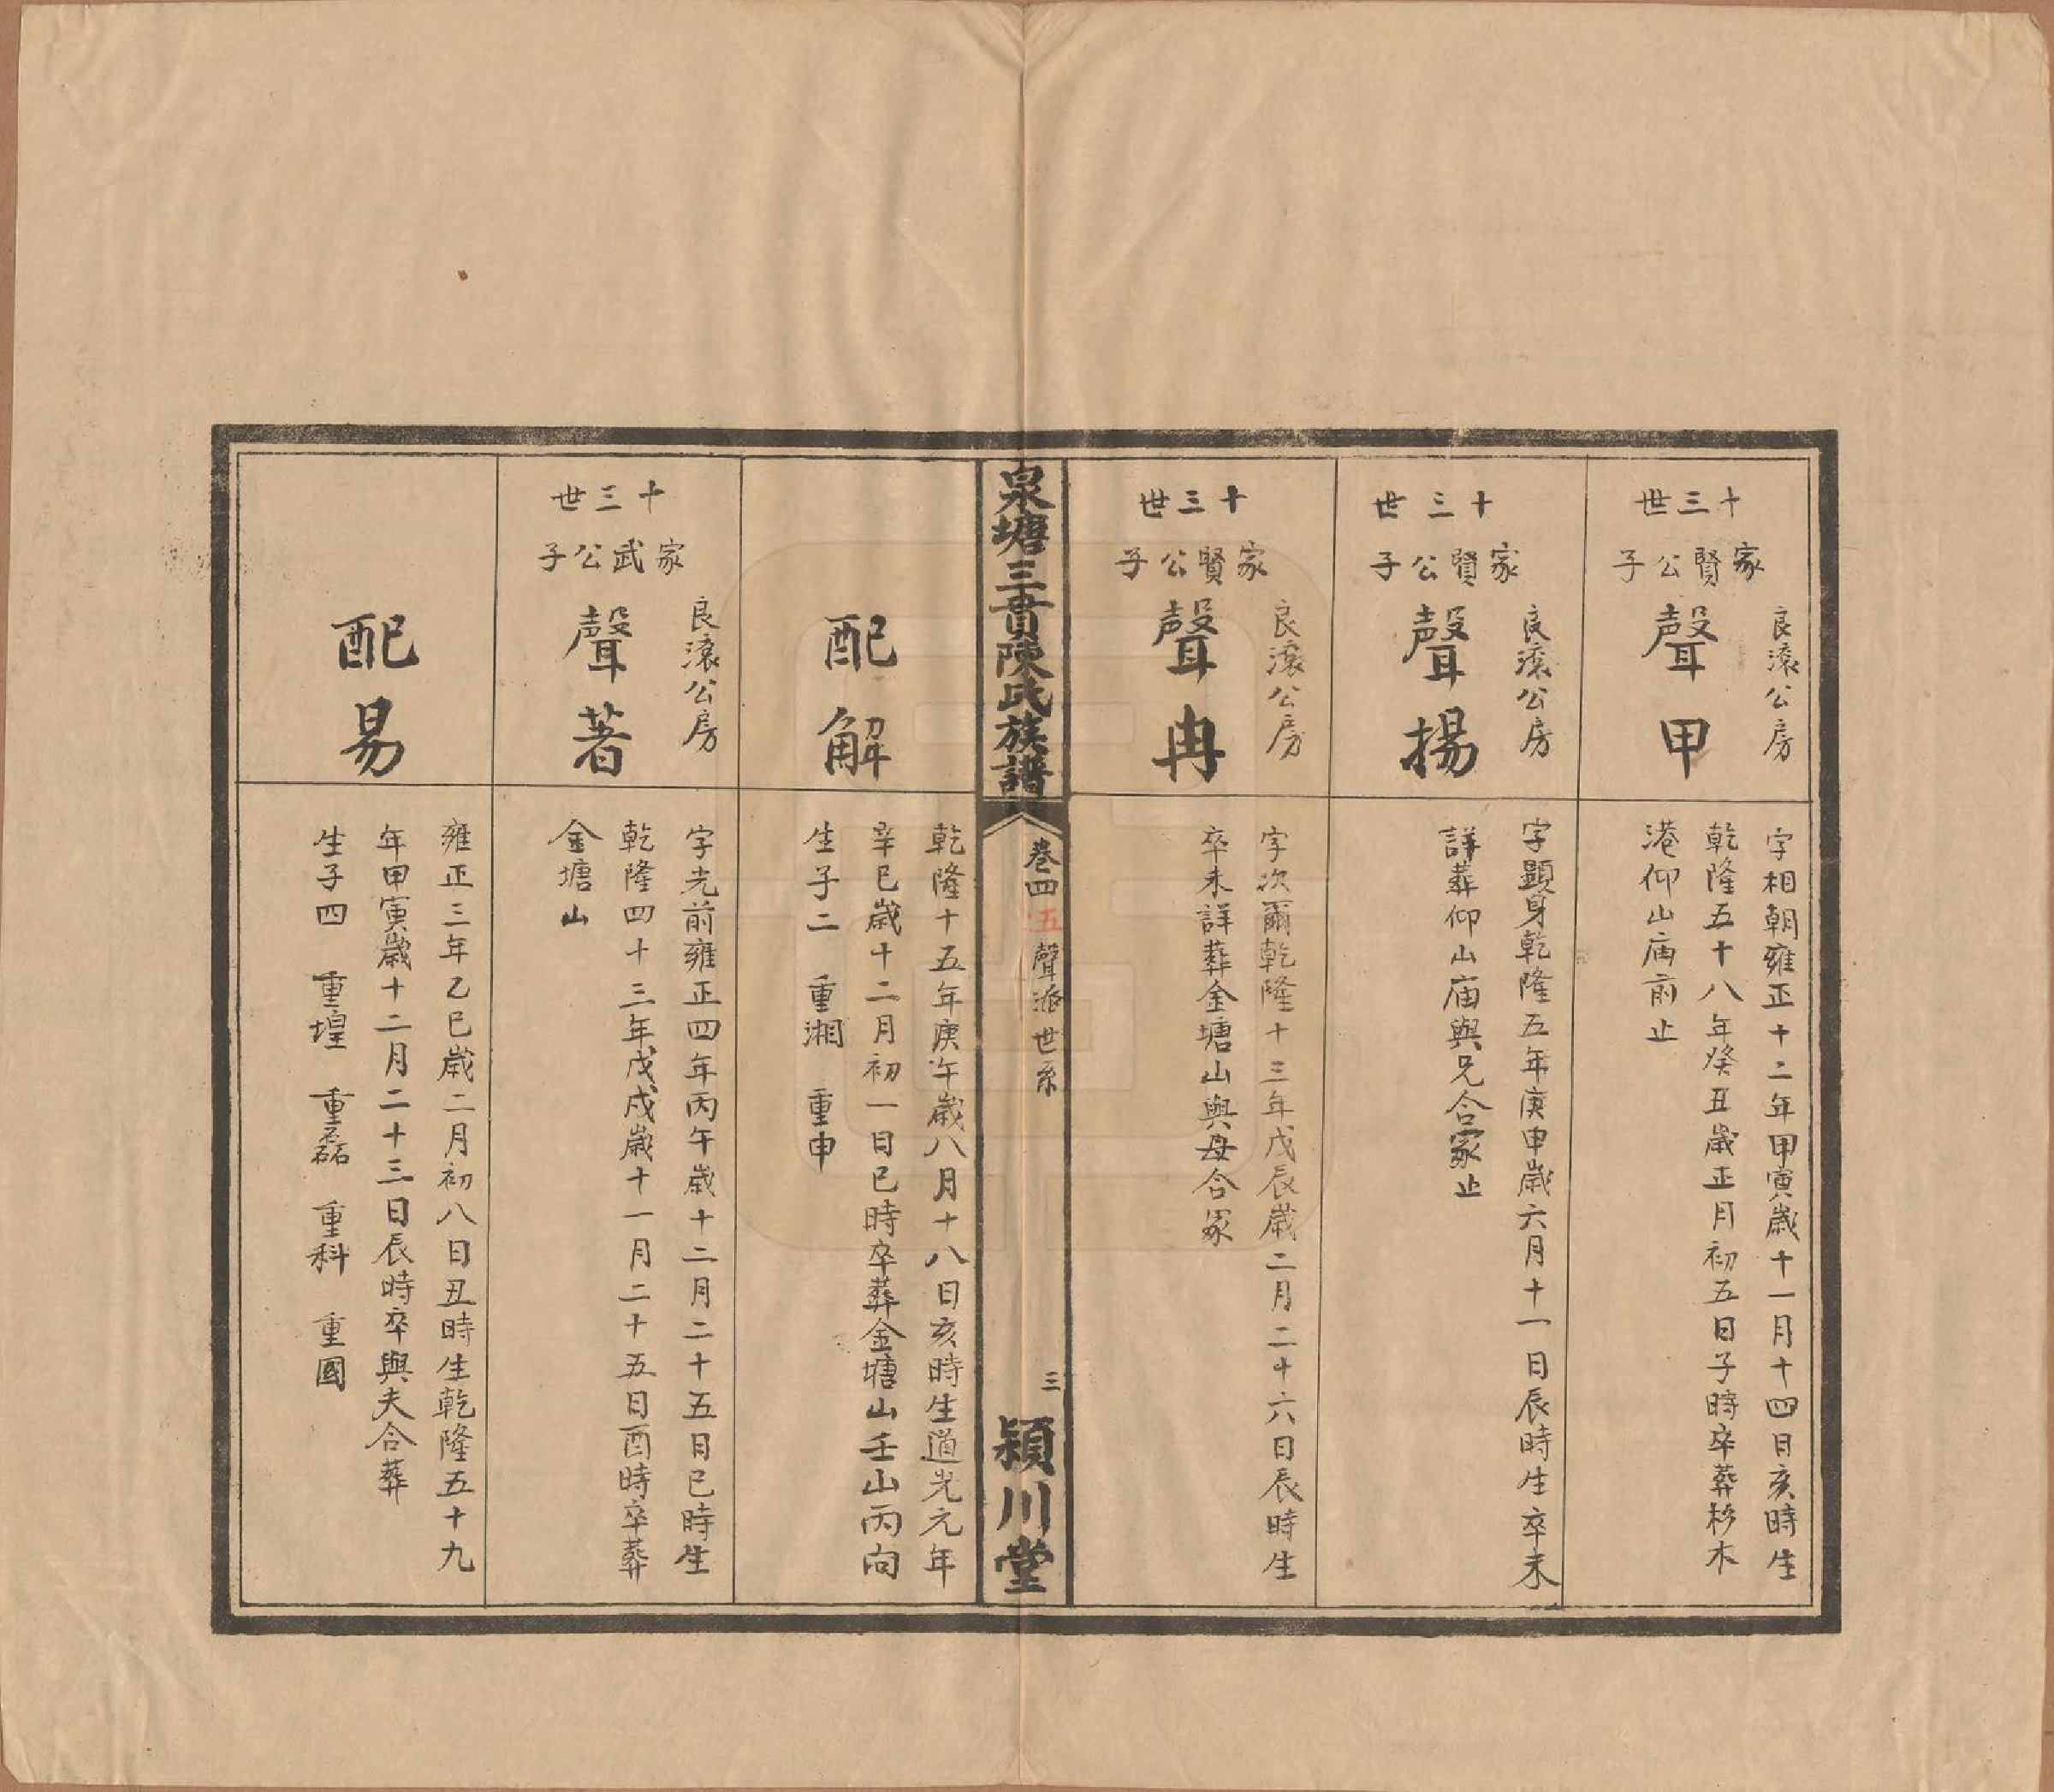 十三世
家賢公子
良滾公房
聲甲
字相朝雍正十二年甲寅歲十一月十四日亥時生
乾隆五十八年癸丑歲正月初五日子時卒葬杉木
港仰山庙前止
十三世
家賢公子
良滾公房
聲揚
字顯身乾隆五年庚申歲六月十一日辰時生卒未
詳葬仰山庙與兄合冢止
十三世
家賢公子
良滾公房
聲冉
字次爾乾隆十三年戊辰歲二月二十六日辰時生
卒未詳葬金塘山與母合冢
泉塘三貫陳氏族譜
卷四
五
聲派世系
三
潁川堂
配解
乾隆十五年庚午歲八月十八日亥時生道光元年
辛巳歲十二月初一日巳時卒葬金塘山壬山丙向
生子二　重湘　重申
十三世
家武公子
良滾公房
聲著
字光前雍正四年丙午歲十二月二十五日巳時生
乾隆四十三年戊戌歲十一月二十五日酉時卒葬
金塘山
配易
雍正三年乙巳歲二月初八日丑時生乾隆五十九
年甲寅歲十二月二十三日辰時卒與夫合葬
生子四　重堭　重磊　重科　重國